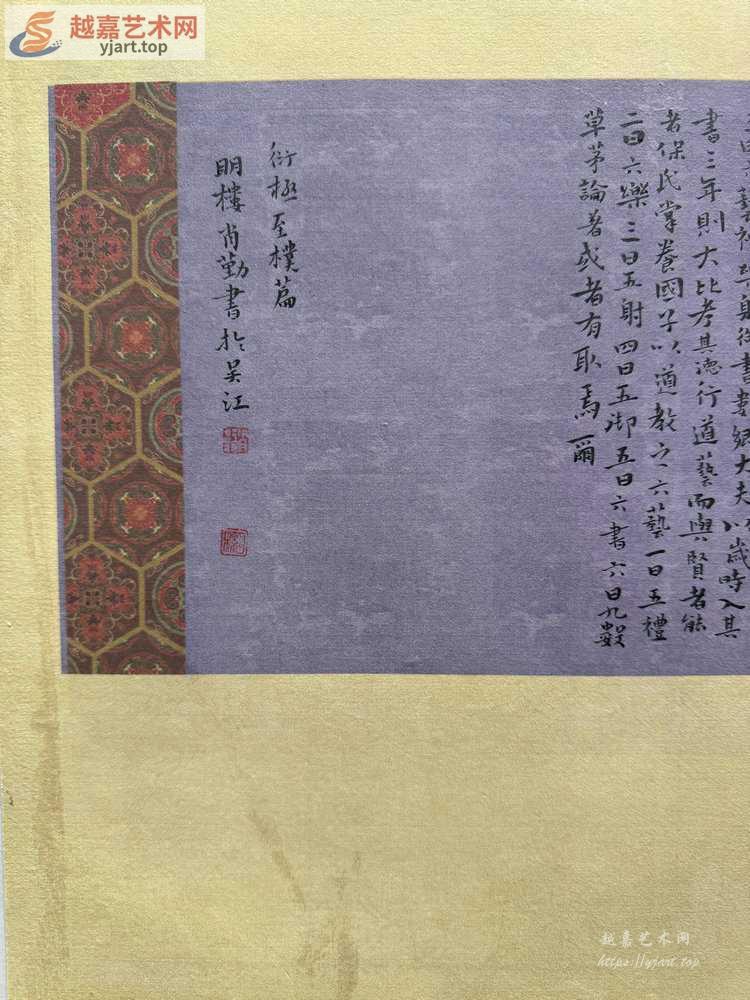 越嘉艺术网
yjart.top
鄉大夫以歲時入其
書三年則大比考其德行道藝而興賢者能
者保氏掌養國子以道教之六藝一曰五禮
二曰六樂三曰五射四曰五御五曰六書六曰九數
草茅論著或者有取焉爾
衍極至樸篇
明樓肖勤書於吴江
越嘉艺术网
https://yjart.top